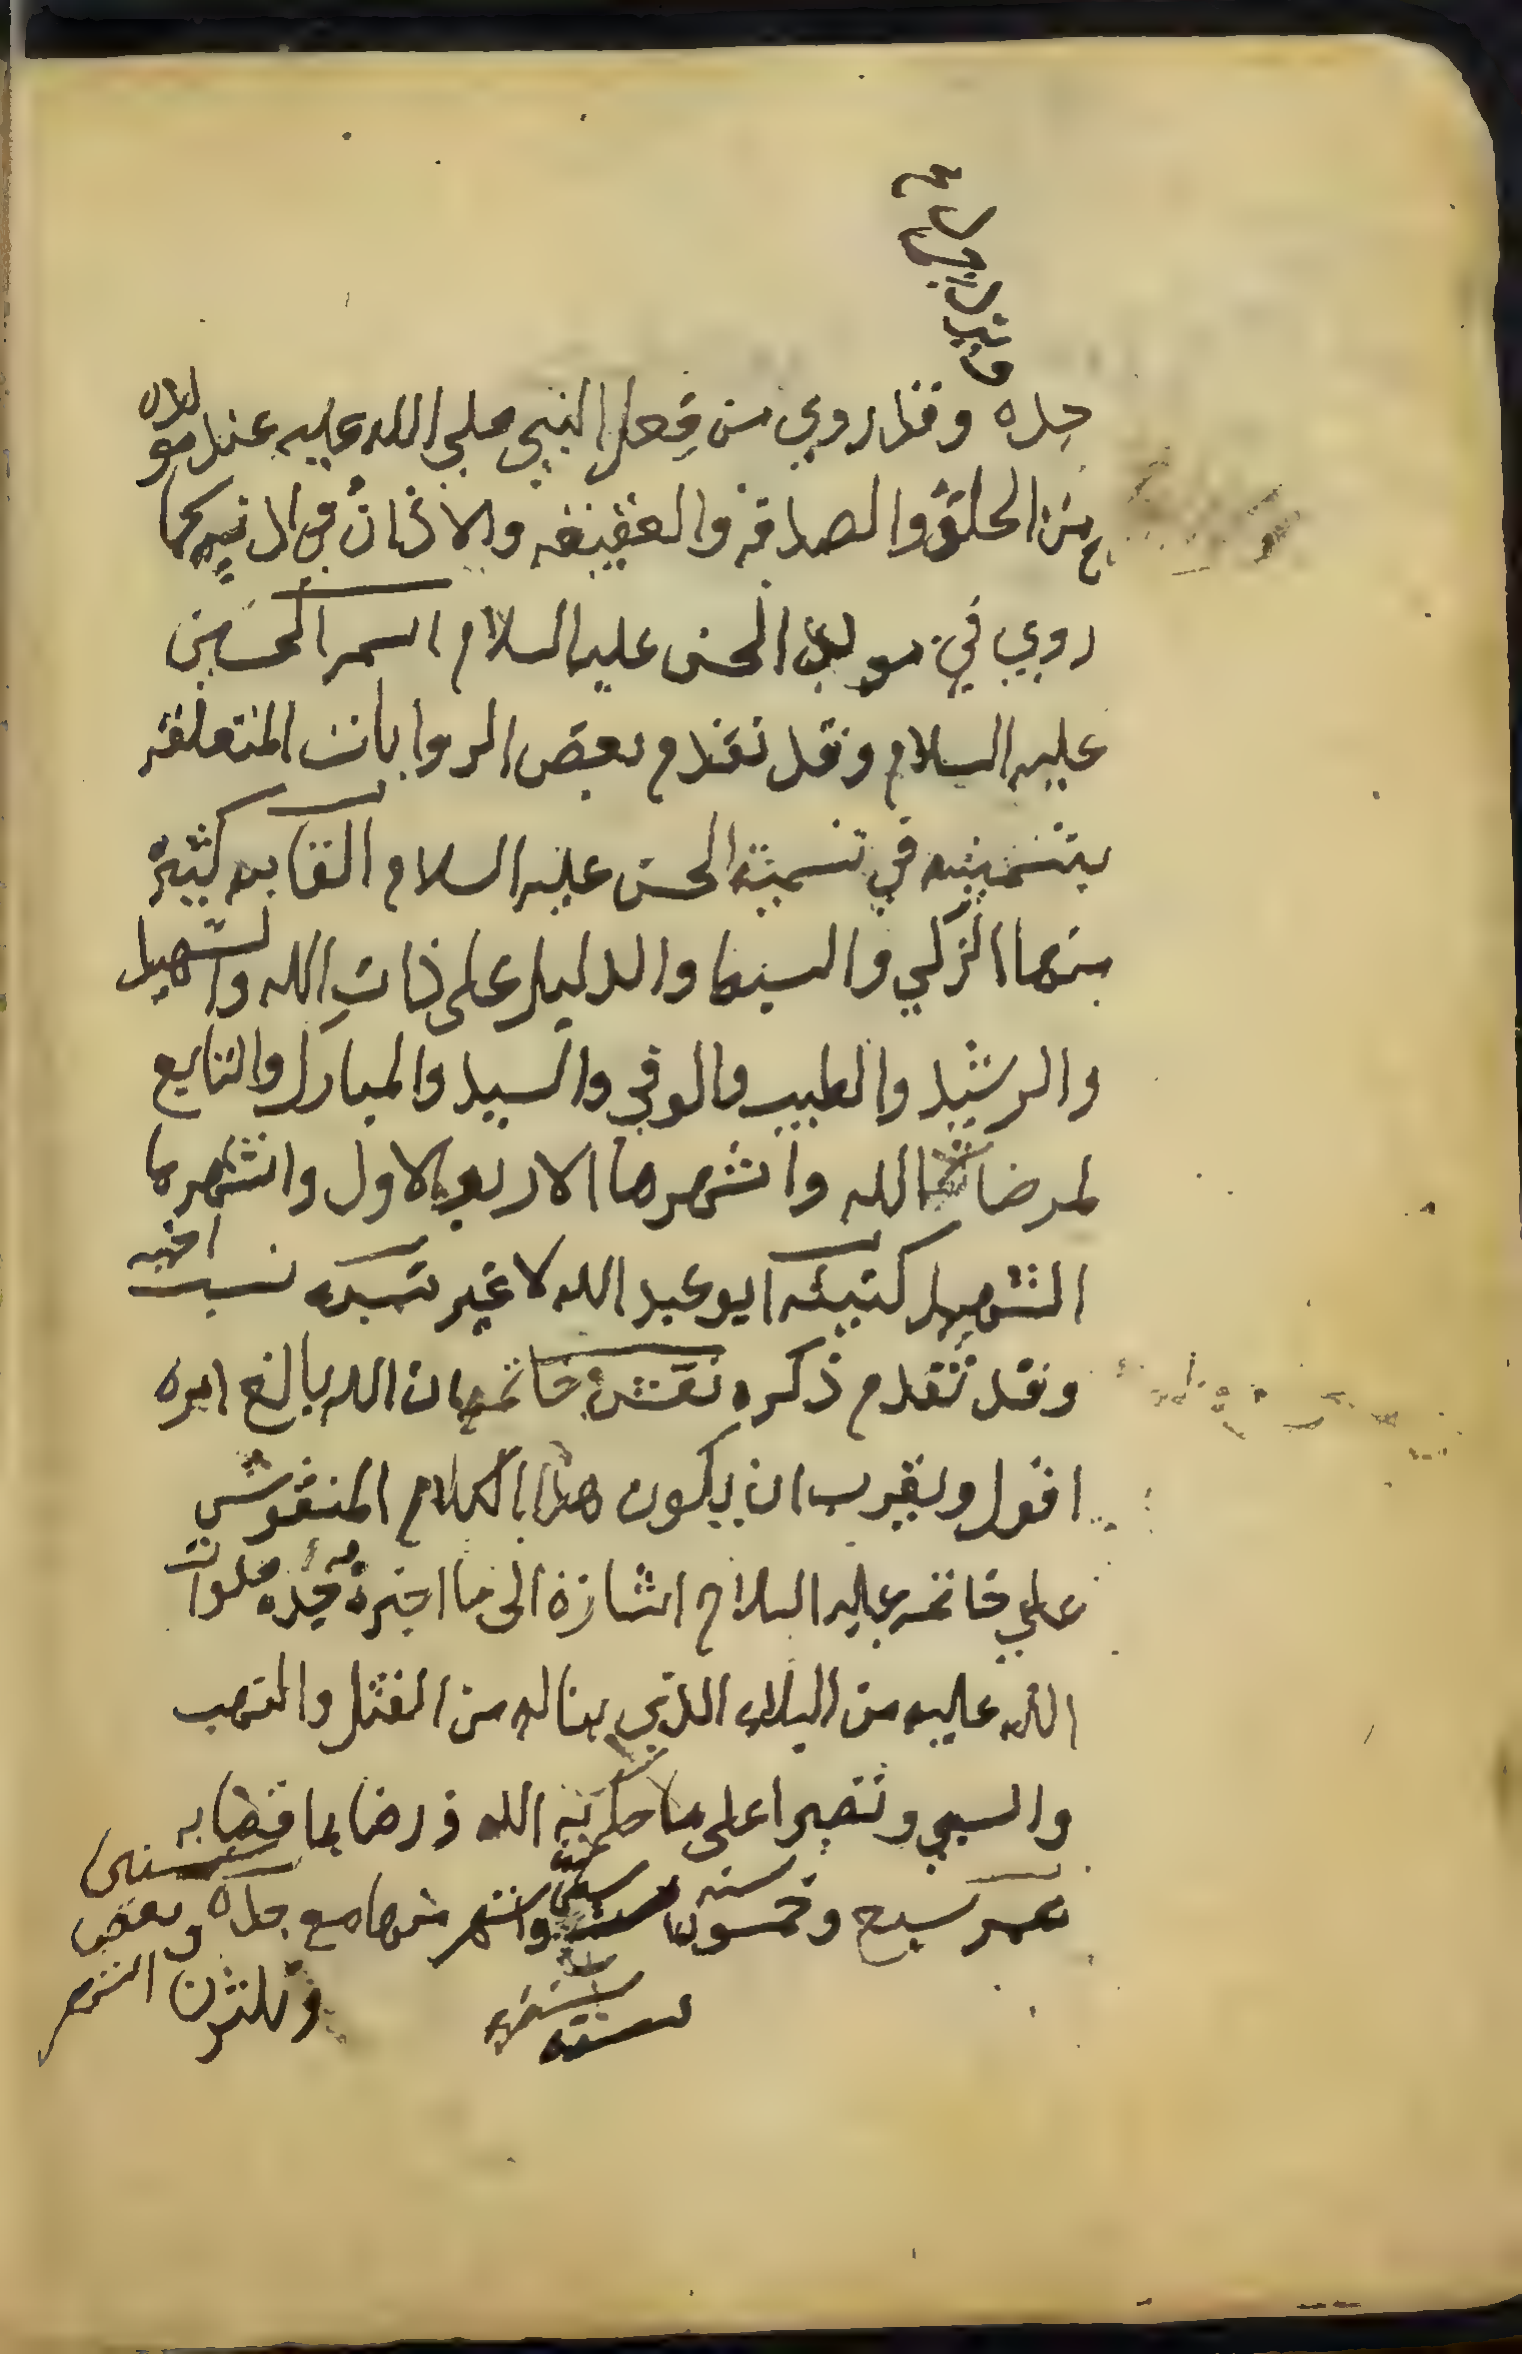 جده وقد روي من فعل النبي صلي الله عليه عند مولده
من الحلق والصدقه والعقيقه والاذان في اذنيه كما
روي في مولد الحسن عليه السلام اسمه الحسين
عليه السلام وقد تقدم بعض الروايات المتعلقه
بتسميته في تسمية الحسن عليه السلام القابه كثيرة
منها الزكي والسبط والدليل على ذات الله والشهيد
والرشيد والطيب والوفي والسيد والمبارك والتابع
لمرضات الله واشهرها الاربعه الاول واشهرها
الشهيد كنيته ابو عبد الله لا غير نسبه نسب اخيه
وقد تقدم ذكره نقش خاتمه ان الله بالغ امره
اقول ويقرب ان يكون هذا الكلام المنقوش
علي خاتمه عليه السلام اشارة الى ما اخبره به جده صلوات
الله عليه من البلاء الذي يناله من القتل والنهب
والسبي وتصبرا على ما حكم به الله ورضا بما قضا به
عمره سبع وخمسون سنه واشهر منها مع جده
وبعض
الشهر
وثلثون